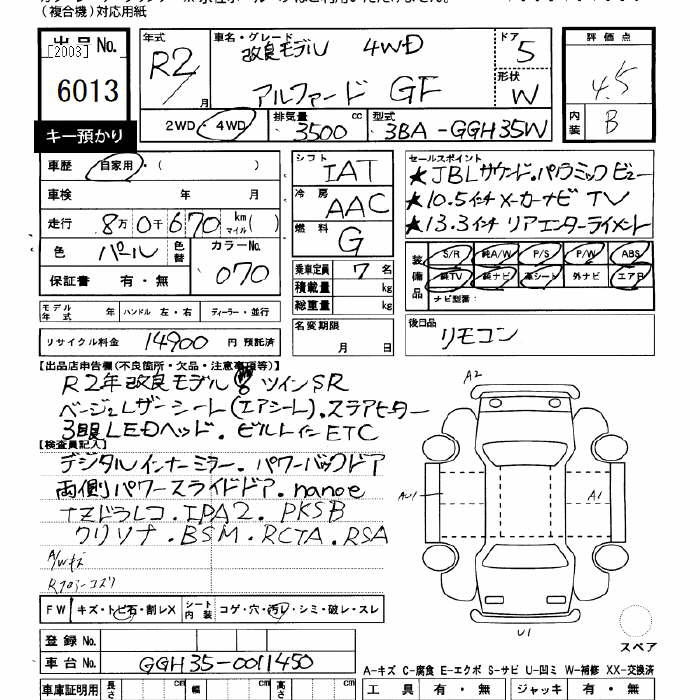 (複合機)対応用紙
出品No.
[2003]
6013
キー預かり
年式 R2/ 月
車名・グレード 改良モデル 4WD
アルファード GF
ドア 5
形状 W
評価点 4.5
内装 B
2WD・4WD
排気量 3500 cc
型式 3BA-GGH35W
車歴 自家用・( )
車検 年 月
走行 8万0千670 km マイル( )
色 パール 色替 カラーNo. 070
保証書 有・無
シフト IAT
冷房 AAC
燃料 G
乗車定員 7 名
積載量 kg
総重量 kg
セールスポイント
★JBLサウンド.パノラミックビュー
★10.5インチメーカーナビ TV
★13.3インチ リアエンターテイメント
装備品 S/R 純A/W P/S P/W ABS
純TV 純ナビ 革シート 外ナビ エアB
ナビ型番:
モデル年式 年 ハンドル 左・右 ディーラー・並行
リサイクル料金 14900 円 預託済
名変期限 月 日
後日品 リモコン
【出品店申告欄(不良箇所・欠品・注意事項等)】
R2年改良モデル ツインSR
ベージュレザーシート(エアシート).ステアヒーター
3眼LEDヘッド.ビルトインETC
【検査員記入】
デジタルインナーミラー.パワーバックドア
両側パワースライドドア.nanoe
ナビドラレコ.IPA2.PKSB
クリソナ.BSM.RCTA.RSA
A/Wキズ
A2
AU1
A1
U1
スペア
FW キズ・トビ石・割レX シート内装 コゲ・穴・汚レ・シミ・破レ・スレ
登録No.
車台No. GGH35-0011450
A-キズ C-腐食 E-エクボ S-サビ U-凹ミ W-補修 XX-交換済
車庫証明用 長さ cm 幅 cm 高さ cm
工具 有・無 ジャッキ 有・無